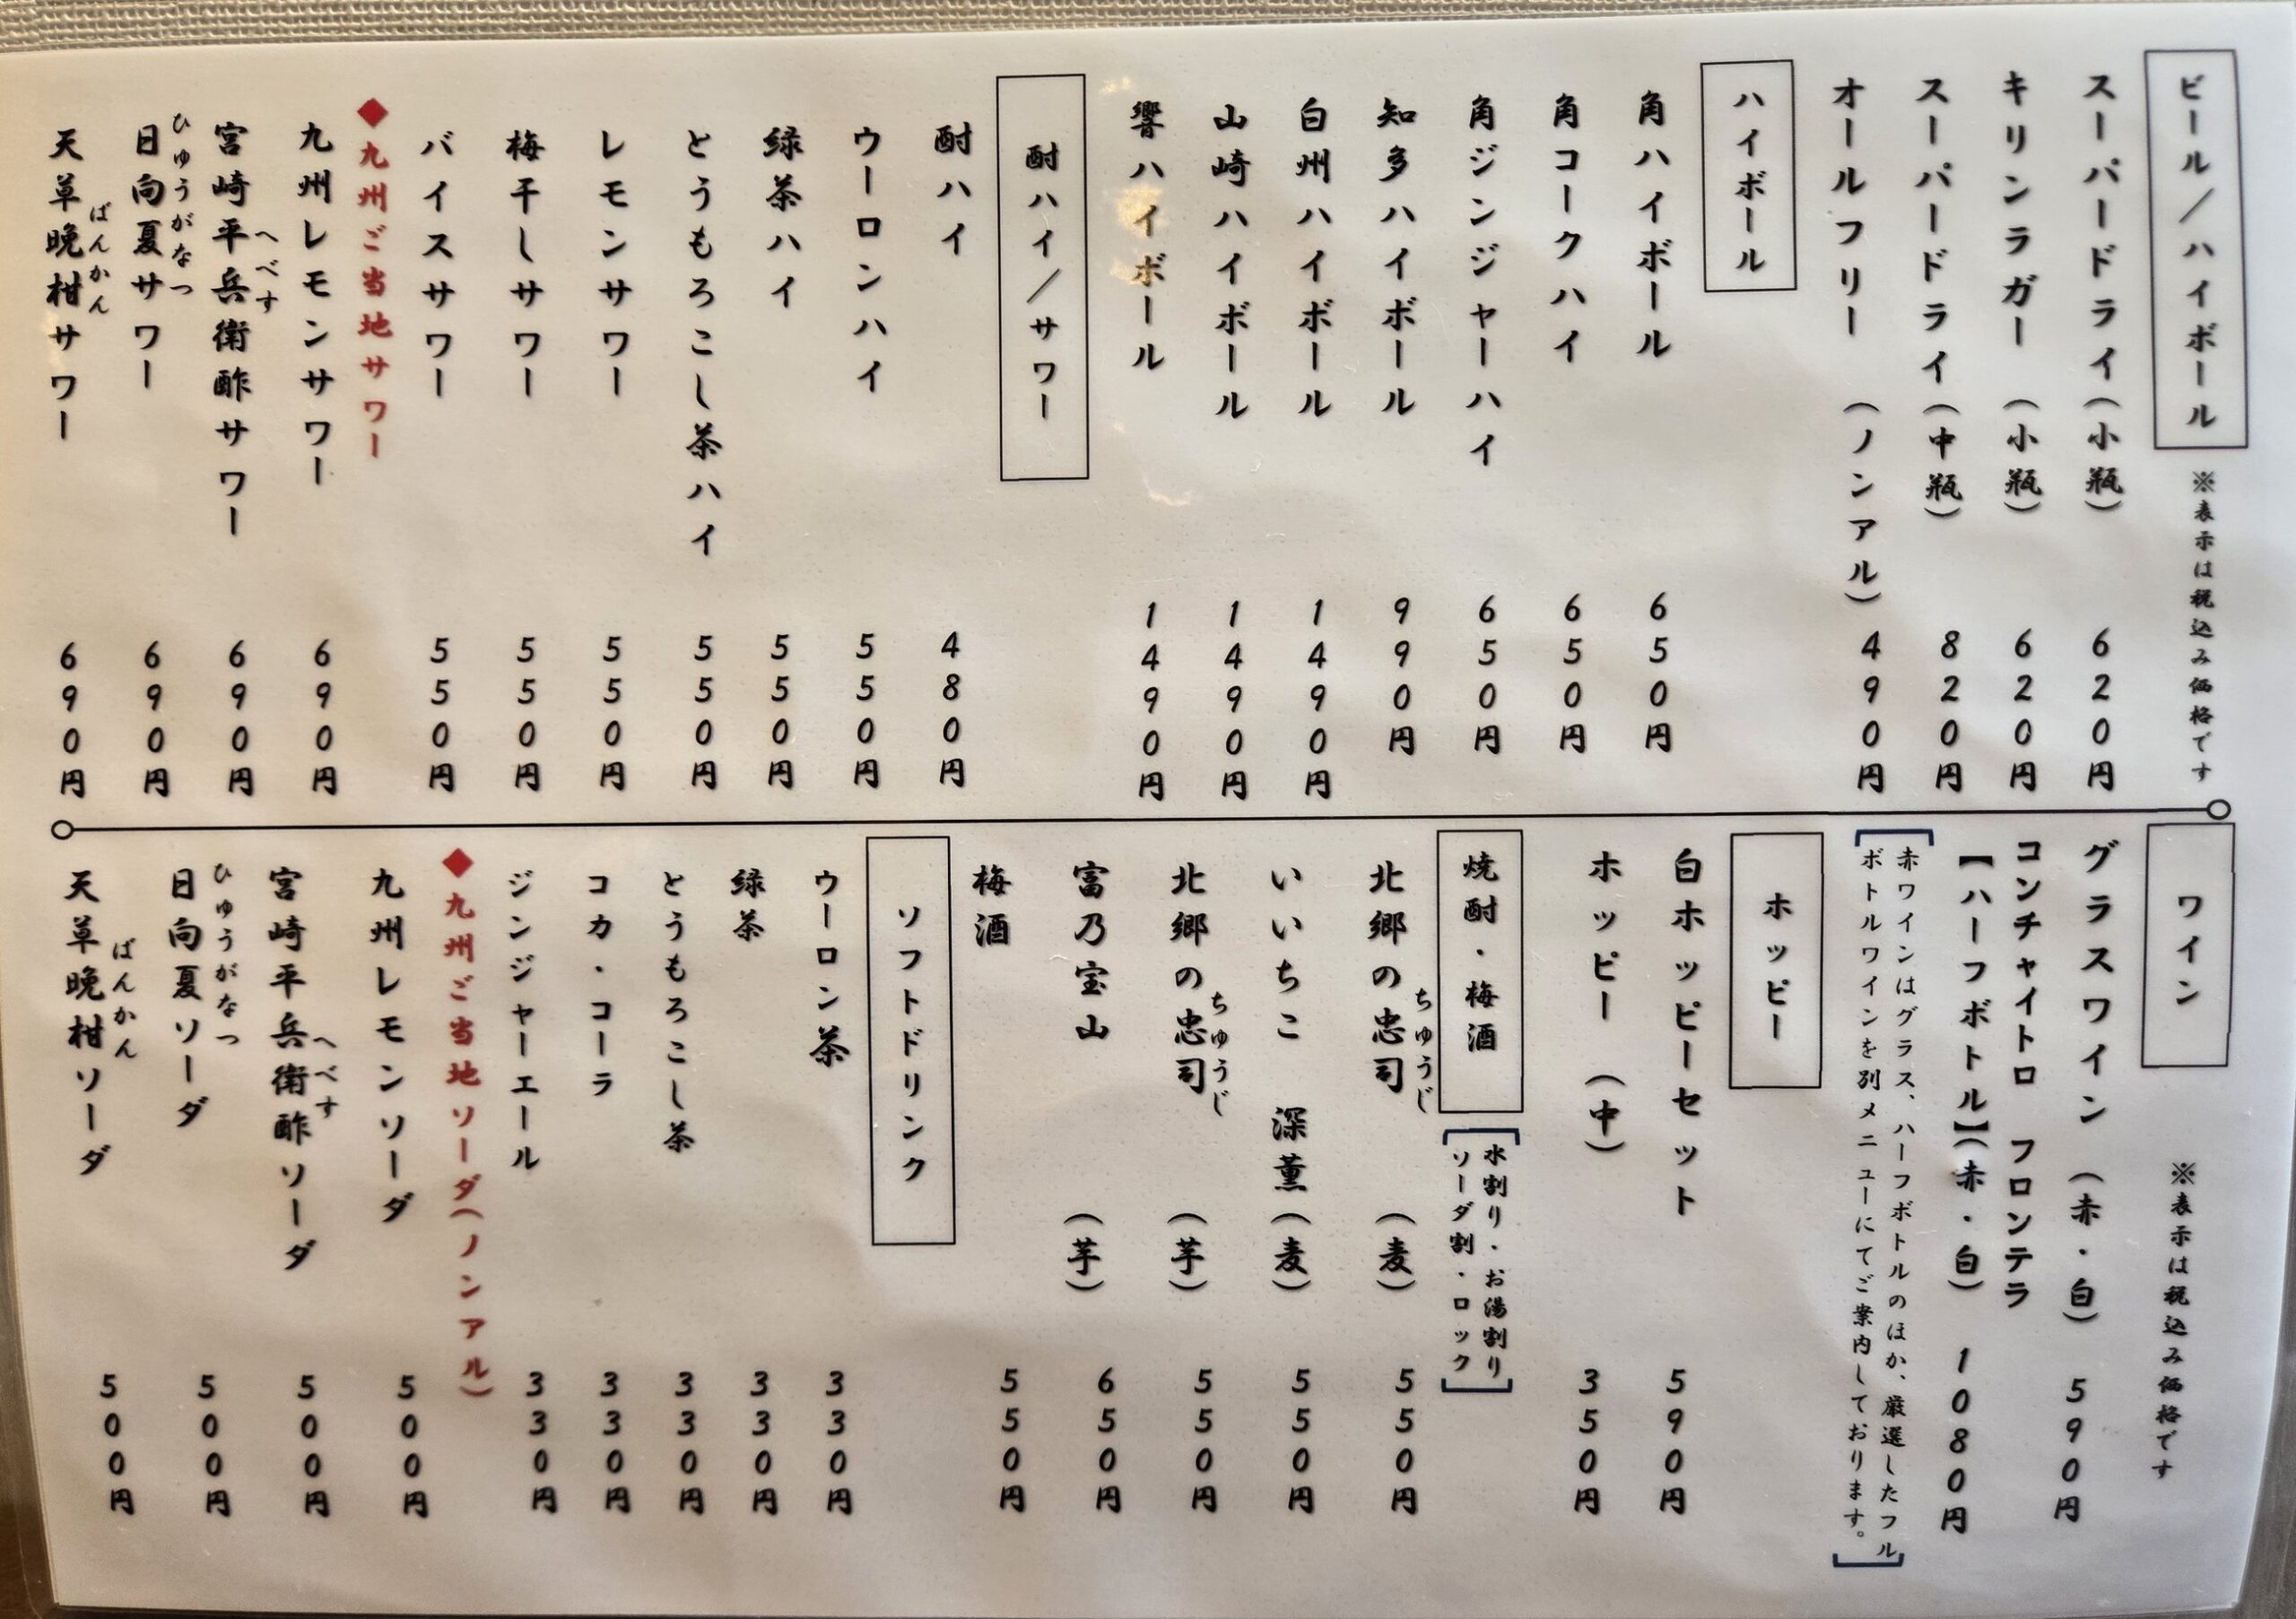 ビール／ハイボール
※表示は税込み価格です
スーパードライ（小瓶） 620円
キリンラガー （小瓶） 620円
スーパードライ（中瓶） 820円
オールフリー （ノンアル） 490円
ハイボール
角ハイボール 650円
角コークハイ 650円
角ジンジャーハイ 650円
知多ハイボール 990円
白州ハイボール 1490円
山崎ハイボール 1490円
響ハイボール 1490円
酎ハイ／サワー
酎ハイ 480円
ウーロンハイ 550円
緑茶ハイ 550円
とうもろこし茶ハイ 550円
レモンサワー 550円
梅干しサワー 550円
バイスサワー 550円
◆九州ご当地サワー
九州レモンサワー 690円
へべす
宮崎平兵衛酢サワー 690円
ひゅうがなつ
日向夏サワー 690円
ばんかん
天草晩柑サワー 690円
ワイン
※表示は税込み価格です
グラスワイン （赤・白） 590円
コンチャイトロ フロンテラ
【ハーフボトル】（赤・白） 1080円
赤ワインはグラス、ハーフボトルのほか、厳選したフル
ボトルワインを別メニューにてご案内しております。
ホッピー
白ホッピーセット 590円
ホッピー （中） 350円
焼酎・梅酒
水割り・お湯割り
ソーダ割・ロック
ちゅうじ
北郷の忠司 （麦） 550円
いいちこ 深薫（麦） 550円
ちゅうじ
北郷の忠司 （芋） 550円
富乃宝山 （芋） 650円
梅酒 550円
ソフトドリンク
ウーロン茶 330円
緑茶 330円
とうもろこし茶 330円
コカ・コーラ 330円
ジンジャーエール 330円
◆九州ご当地ソーダ（ノンアル）
九州レモンソーダ 500円
へべす
宮崎平兵衛酢ソーダ 500円
ひゅうがなつ
日向夏ソーダ 500円
ばんかん
天草晩柑ソーダ 500円